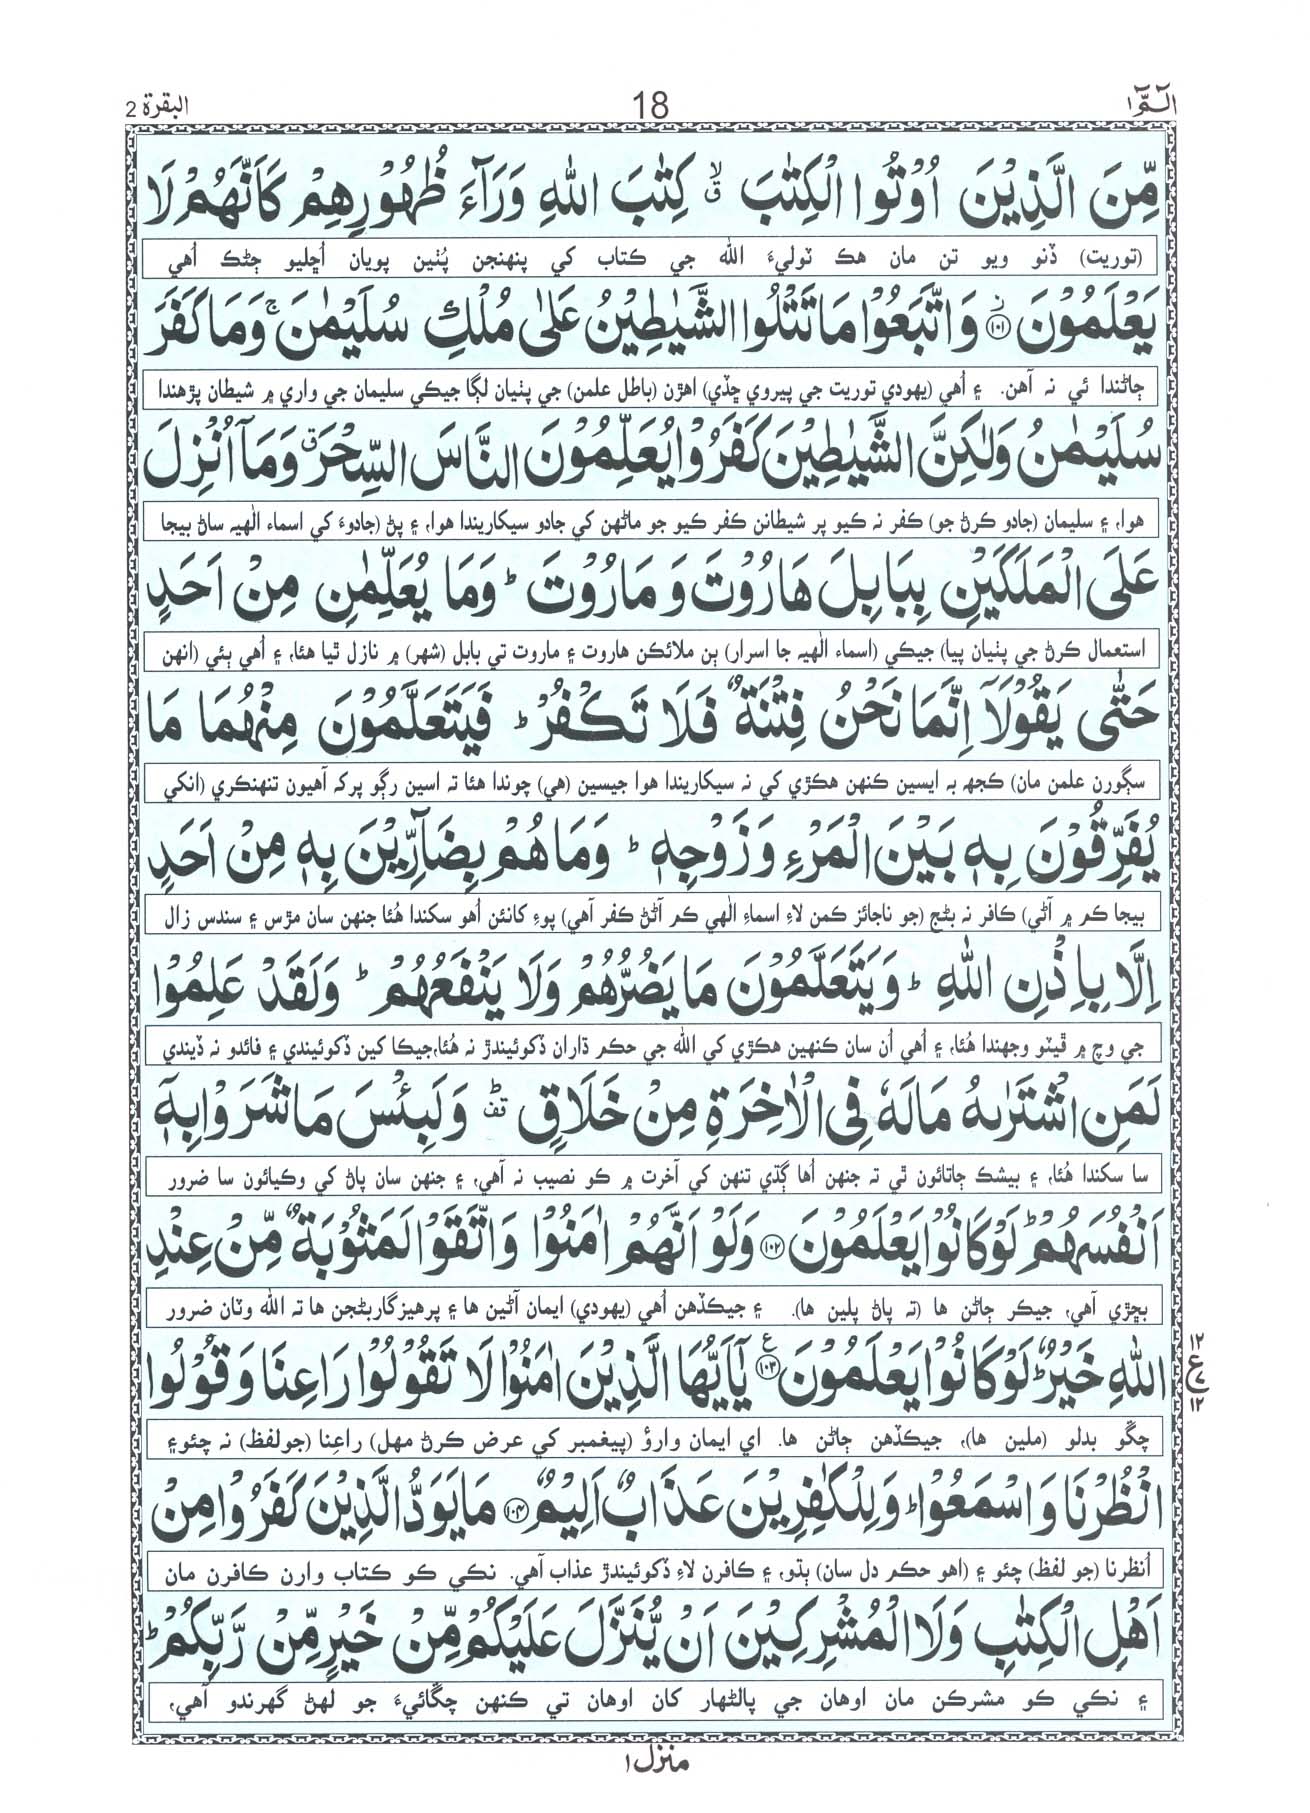 الٓـمّٓ ١ 18 البقرة 2
مِّنَ الَّذِيْنَ اُوْتُوا الْكِتٰبَ ۙۗ كِتٰبَ اللّٰهِ وَرَآءَ ظُهُوْرِهِمْ كَاَنَّهُمْ لَا
(توريت) ڏنو ويو تن مان هڪ ٽوليءَ الله جي ڪتاب کي پنهنجن پُٺين پويان اُڇليو ڄڻڪ اُهي
يَعْلَمُوْنَ ۝١٠١ۡ وَاتَّبَعُوْا مَا تَتْلُوا الشَّيٰطِيْنُ عَلٰى مُلْكِ سُلَيْمٰنَ ۚ وَمَا كَفَرَ
ڄاڻندا ئي نه آهن. ۽ اُهي (يهودي توريت جي پيروي ڇڏي) اهڙن (باطل علمن) جي پٺيان لڳا جيڪي سليمان جي واري ۾ شيطان پڙهندا
سُلَيْمٰنُ وَلٰكِنَّ الشَّيٰطِيْنَ كَفَرُوْا يُعَلِّمُوْنَ النَّاسَ السِّحْرَ ۗ وَمَآ اُنْزِلَ
هوا، ۽ سليمان (جادو ڪرڻ جو) ڪفر نه ڪيو پر شيطانن ڪفر ڪيو جو ماڻهن کي جادو سيکاريندا هوا، ۽ پڻ (جادوءَ کي اسماء الٰهيه ساڻ بيجا
عَلَى الْمَلَكَيْنِ بِبَابِلَ هَارُوْتَ وَ مَارُوْتَ ؕ وَمَا يُعَلِّمٰنِ مِنْ اَحَدٍ
استعمال ڪرڻ جي پٺيان پيا) جيڪي (اسماء الٰهيه جا اسرار) ٻن ملائڪن هاروت ۽ ماروت تي بابل (شهر) ۾ نازل ٿيا هئا، ۽ اُهي ٻئي (انهن
حَتّٰى يَقُوْلَآ اِنَّمَا نَحْنُ فِتْنَةٌ فَلَا تَكْفُرْ ؕ فَيَتَعَلَّمُوْنَ مِنْهُمَا مَا
سڳورن علمن مان) ڪجهه به ايسين ڪنهن هڪڙي کي نه سيکاريندا هوا جيسين (هي) چوندا هئا ته اسين رڳو پرک آهيون تنهنڪري (انکي
يُفَرِّقُوْنَ بِهٖ بَيْنَ الْمَرْءِ وَزَوْجِهٖ ؕ وَمَا هُمْ بِضَآرِّيْنَ بِهٖ مِنْ اَحَدٍ
بيجا ڪم ۾ آڻي) ڪافر نه بڻج (جو ناجائز ڪمن لاءِ اسماءِ الٰهي ڪم آڻڻ ڪفر آهي) پوءِ کانئن اُهو سکندا هُئا جنهن سان مڙس ۽ سندس زال
اِلَّا بِاِذْنِ اللّٰهِ ؕ وَيَتَعَلَّمُوْنَ مَا يَضُرُّهُمْ وَلَا يَنْفَعُهُمْ ؕ وَلَقَدْ عَلِمُوْا
جي وچ ۾ ڦيٽو وجهندا هُئا، ۽ اُهي اُن سان ڪنهين هڪڙي کي الله جي حڪم ڌاران ڏکوئيندڙ نه هُئا، جيڪا کين ڏکوئيندي ۽ فائدو نه ڏيندي
لَمَنِ اشْتَرٰىهُ مَا لَهٗ فِى الْاٰخِرَةِ مِنْ خَلَاقٍ ؕ قف وَلَبِئْسَ مَا شَرَوْا بِهٖٓ
سا سکندا هُئا، ۽ بيشڪ ڄاتائون ٿي ته جنهن اُها ڳڌي تنهن کي آخرت ۾ ڪو نصيب نه آهي، ۽ جنهن سان پاڻ کي وڪيائون سا ضرور
اَنْفُسَهُمْ ؕ لَوْ كَانُوْا يَعْلَمُوْنَ ۝١٠٢ وَلَوْ اَنَّهُمْ اٰمَنُوْا وَاتَّقَوْا لَمَثُوْبَةٌ مِّنْ عِنْدِ
بڇڙي آهي، جيڪر ڄاڻن ها (ته پاڻ پلين ها). ۽ جيڪڏهن اُهي (يهودي) ايمان آڻين ها ۽ پرهيزگار بڻجن ها ته الله وٽان ضرور
اللّٰهِ خَيْرٌ ؕ لَوْ كَانُوْا يَعْلَمُوْنَ ۝١٠٣ ع يٰٓاَيُّهَا الَّذِيْنَ اٰمَنُوْا لَا تَقُوْلُوْا رَاعِنَا وَقُوْلُوا
١٢ ع ٧ ١٢
چڱو بدلو (ملين ها)، جيڪڏهن ڄاڻن ها. اي ايمان وارؤ (پيغمبر کي عرض ڪرڻ مهل) راعِنا (جو لفظ) نه چئو ۽
انْظُرْنَا وَاسْمَعُوْا ؕ وَلِلْكٰفِرِيْنَ عَذَابٌ اَلِيْمٌ ۝١٠٤ مَا يَوَدُّ الَّذِيْنَ كَفَرُوْا مِنْ
اُنظرنا (جو لفظ) چئو ۽ (اهو حڪم دل سان) ٻڌو، ۽ ڪافرن لاءِ ڏکوئيندڙ عذاب آهي. نڪي ڪو ڪتاب وارن ڪافرن مان
اَهْلِ الْكِتٰبِ وَلَا الْمُشْرِكِيْنَ اَنْ يُّنَزَّلَ عَلَيْكُمْ مِّنْ خَيْرٍ مِّنْ رَّبِّكُمْ ؕ
۽ نڪي ڪو مشرڪن مان اوهان جي پالڻهار کان اوهان تي ڪنهن چڱائيءَ جو لهڻ گهرندو آهي،
منزل ١